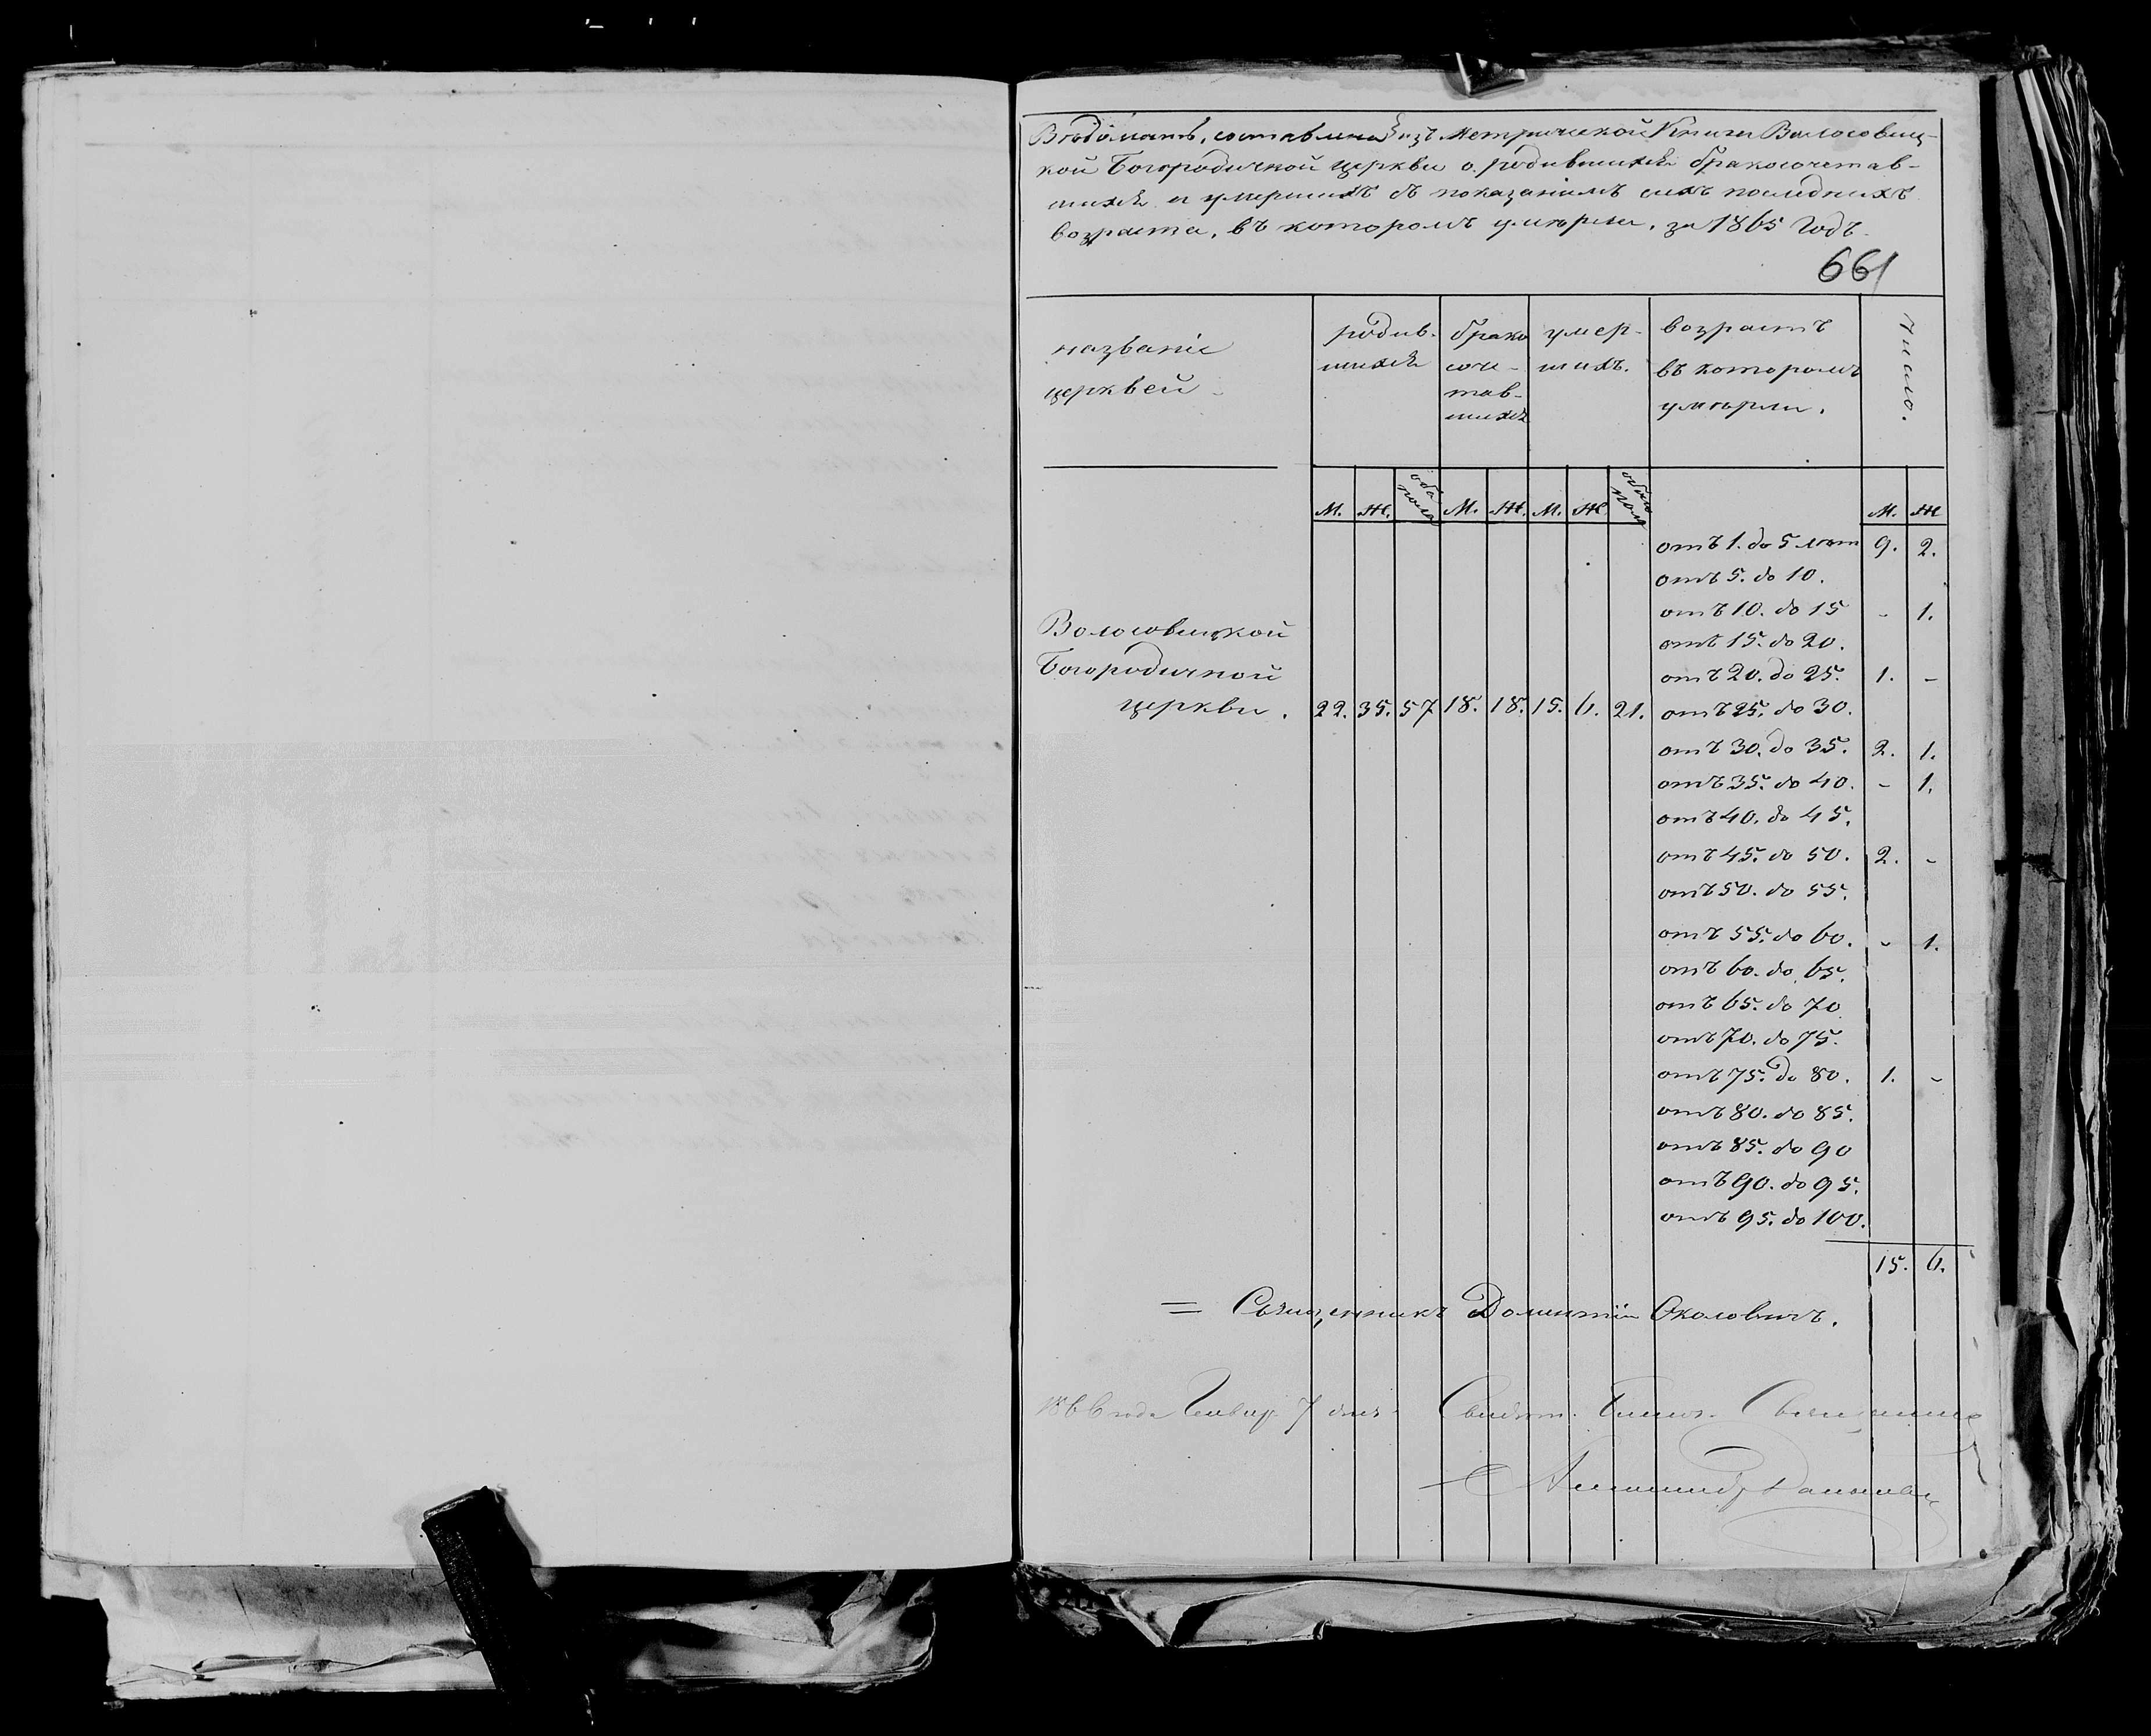 Вѣдомость, составлена изъ Метрической Книги Волосовиц-
кой Богородичной церкви о родившихся бракосочетав-
шихся и умершихъ съ показаніемъ сихъ послѣднихъ
возраста, въ которомъ умѣрли, за 1865 годъ.
661
названіе церквей
родив-
шихся
брако
соче-
тав-
шихся
умер-
шихъ.
возрастъ
въ которомъ
умѣрли.
Число.
М. Ж. оба пола М. Ж. М. Ж. обоего пола М. Ж
отъ 1. до 5 лѣт 9. 2.
отъ 5. до 10.
отъ 10. до 15 - 1.
отъ 15. до 20.
отъ 20. до 25. 1. -
Волосовицкой
Богородичной
церкви. 22. 35. 57 18. 18. 15. 6. 21. отъ 25. до 30.
отъ 30. до 35. 2. 1.
отъ 35. до 40. - 1.
отъ 40. до 45.
отъ 45. до 50. 2. -
отъ 50. до 55.
отъ 55. до 60. - 1.
отъ 60. до 65.
отъ 65. до 70
отъ 70. до 75.
отъ 75. до 80. 1. -
отъ 80. до 85.
отъ 85. до 90
отъ 90. до 95.
отъ 95. до 100.
15. 6.
= Священникъ Доментій Околовичъ.
1866 года Генвар. 7 дня
Священникъ